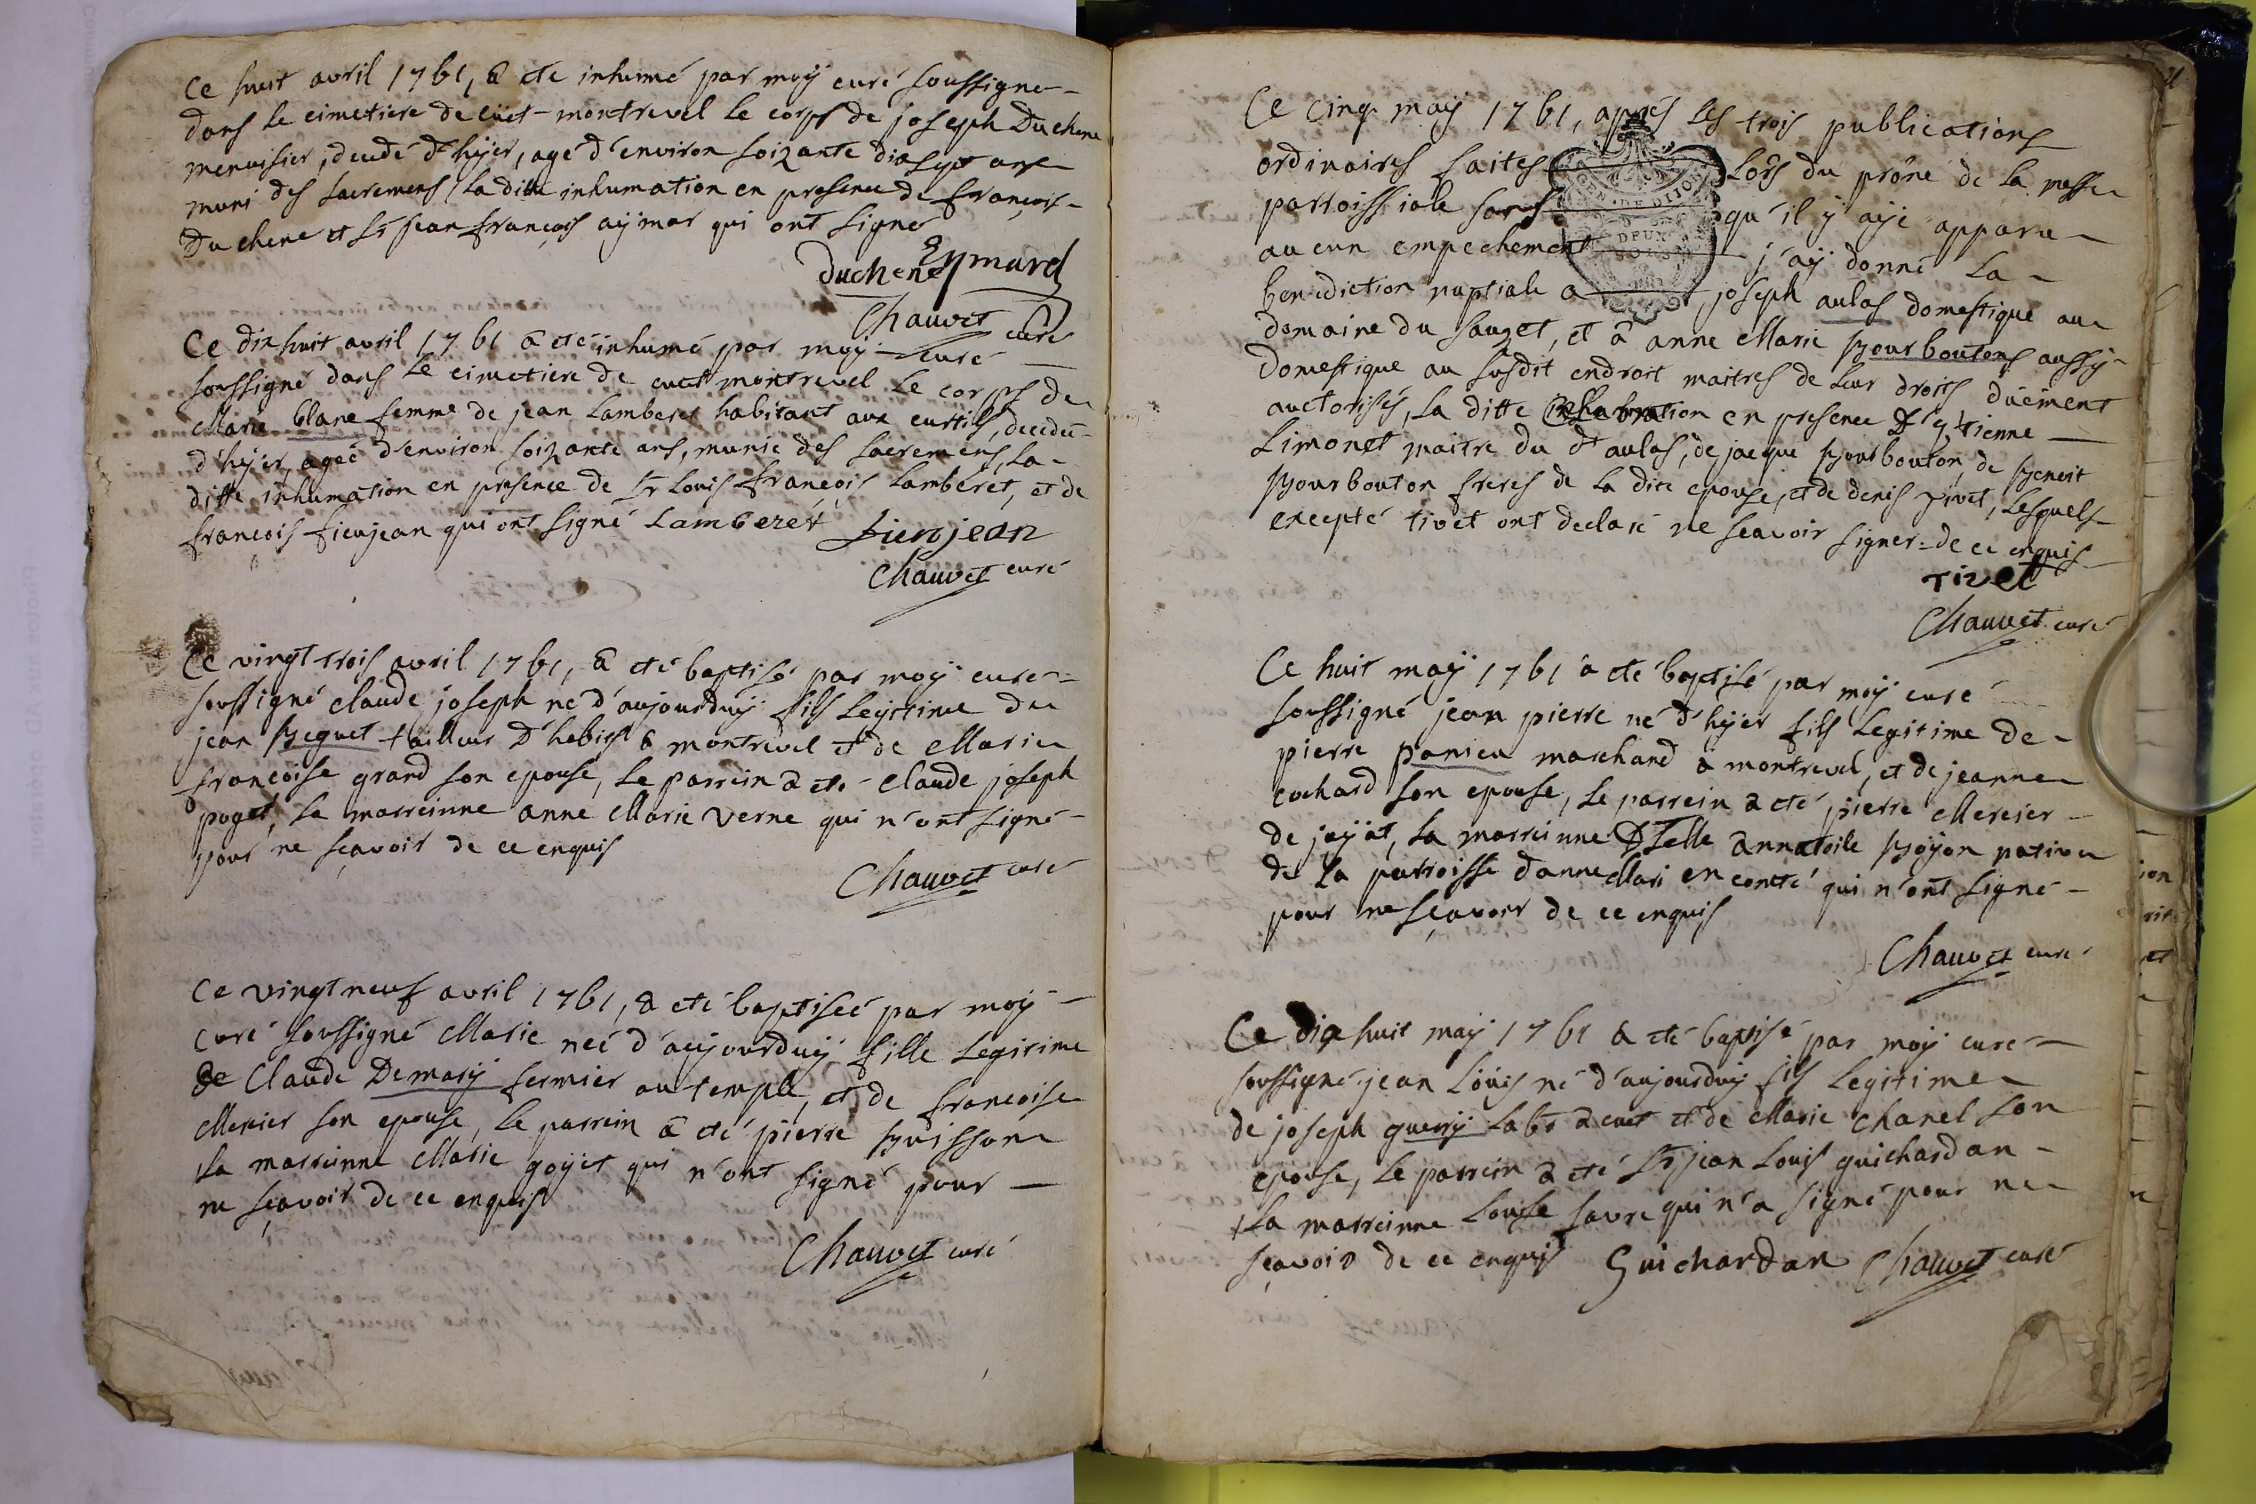 Ce huit avril 1761, a eté inhumé par moÿ curé soussigné
dans le cimetiere de cüet-montrevel le corps de joseph Duchene
menuisier, decedé d'hÿer, agé d'environ soizante dix sept ans
muni des sacremens la ditte inhumation en presence de françois
Duchene et Sr jean françois aÿmar qui ont signé
Duchene Eymard
Chauvet curé
Ce dix huit avril 1761 a eté inhumé par moÿ curé
soussigné dans le cimetiere de cuet montrevel le corps de
Marie blanc femme de jean Lamberet habitant aux curtils, decedée
d'hÿer, agée d'environ soizante ans, munie des sacremens, la
ditte inhumation en presence de Sr Louis françois Lamberet, et de
françois fieujean qui ont signé Lamberet fieujean
Chauvet curé
Ce vingt trois avril 1761, a eté baptisé par moÿ curé
soussigné claude joseph né d'aujourduÿ fils legitime de
jean Beguet tailleur d'habist a montrevel et de Marie
françoise grand son epouse, le parrein a eté claude joseph
poget, la marreinne anne Marie verne qui n'ont signé
pour ne sçavoir de ce enquis
Chauvet curé
Ce vingt neuf avril 1761, a eté baptiseé par moÿ
curé soussigné Marie neé d'aujourduÿ fille legitime
de Claude Demarÿ fermier au temple, et de françoise
Mercier son epouse, le parrein a eté pierre Buisson
la marreinne Marie goÿet qui n'ont signé pour
ne sçavoir de ce enquis
Chauvet curé
Ce cinq maÿ 1761, aprés les trois publications
ordinaires faites lors du prône de la messe
parroissiale sans qu'il ÿ aÿe apparu
aucun empechement j'aÿ donné la
benediction nuptiale a joseph aulas domestique au
domaine du sauzet, et à anne Marie Bourboutons aussÿ
Domestique au susdit endroit maitres de leur droits düement
auctorisés, la ditte celebration en presence d'ÿtienne
Limonet maitre du dt aulas, de jacque Bourbouton, de Benoit
Bourbouton freres de la dite epouse, et de denis Tivet, lesquels
excepté tivet ont declaré ne sçavoir signer de ce enquis
Tivet
Chauvet curé
Ce huit maÿ 1761 a eté baptisé par moÿ curé
soussigné jean pierre né d'hÿer fils legitime de
pierre panicu marchand a montrevel, et de jeanne
cochard son epouse, le parrein a eté pierre Mercier
de jaÿat, la marreinne Dselle annatoile Boÿon native
de la parroisse d'annellari en comté qui n'ont signé
pour ne sçavoir de ce enquis
Chauvet curé
Ce dix huit maÿ 1761 a eté baptisé par moÿ curé
soussigné jean Loüis né d'aujourduÿ fils legitime
de joseph guerrÿ labr a cuet et de Marie chanel son
epouse, le parrein a eté Sr jean Louis guichardan
la marreinne Louise favre qui n'a signé pour ne
sçavoir de ce enquis Guichardan Chauvet curé